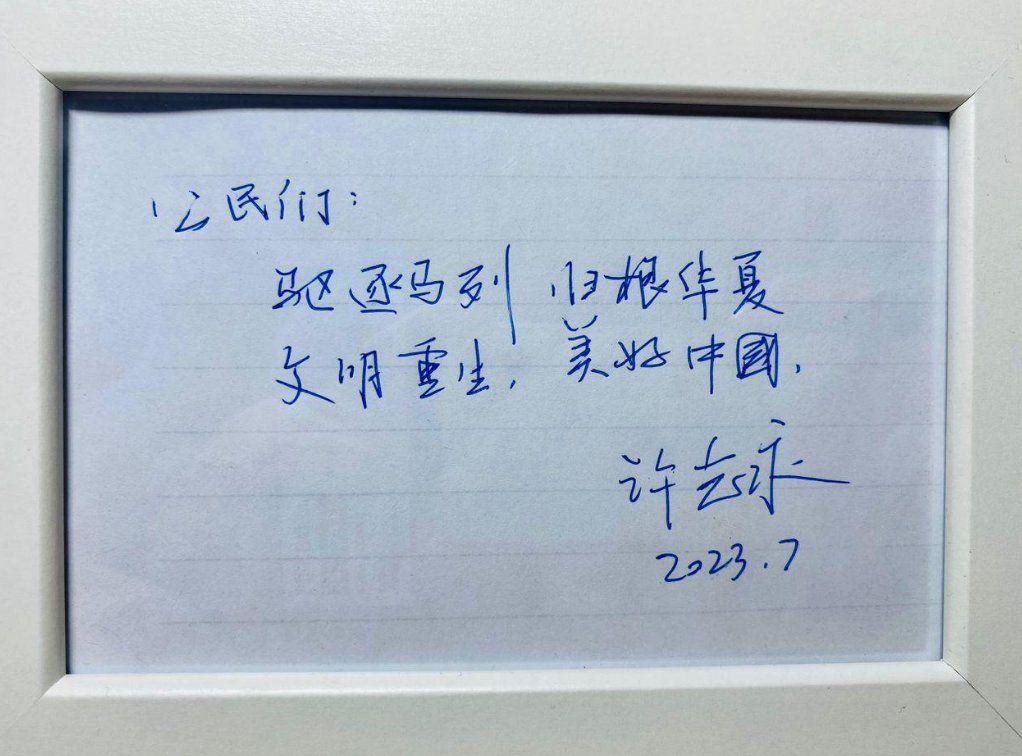 公民们：
驱逐马列 归根华夏
文明重生，美好中國．
许志永
2023.7